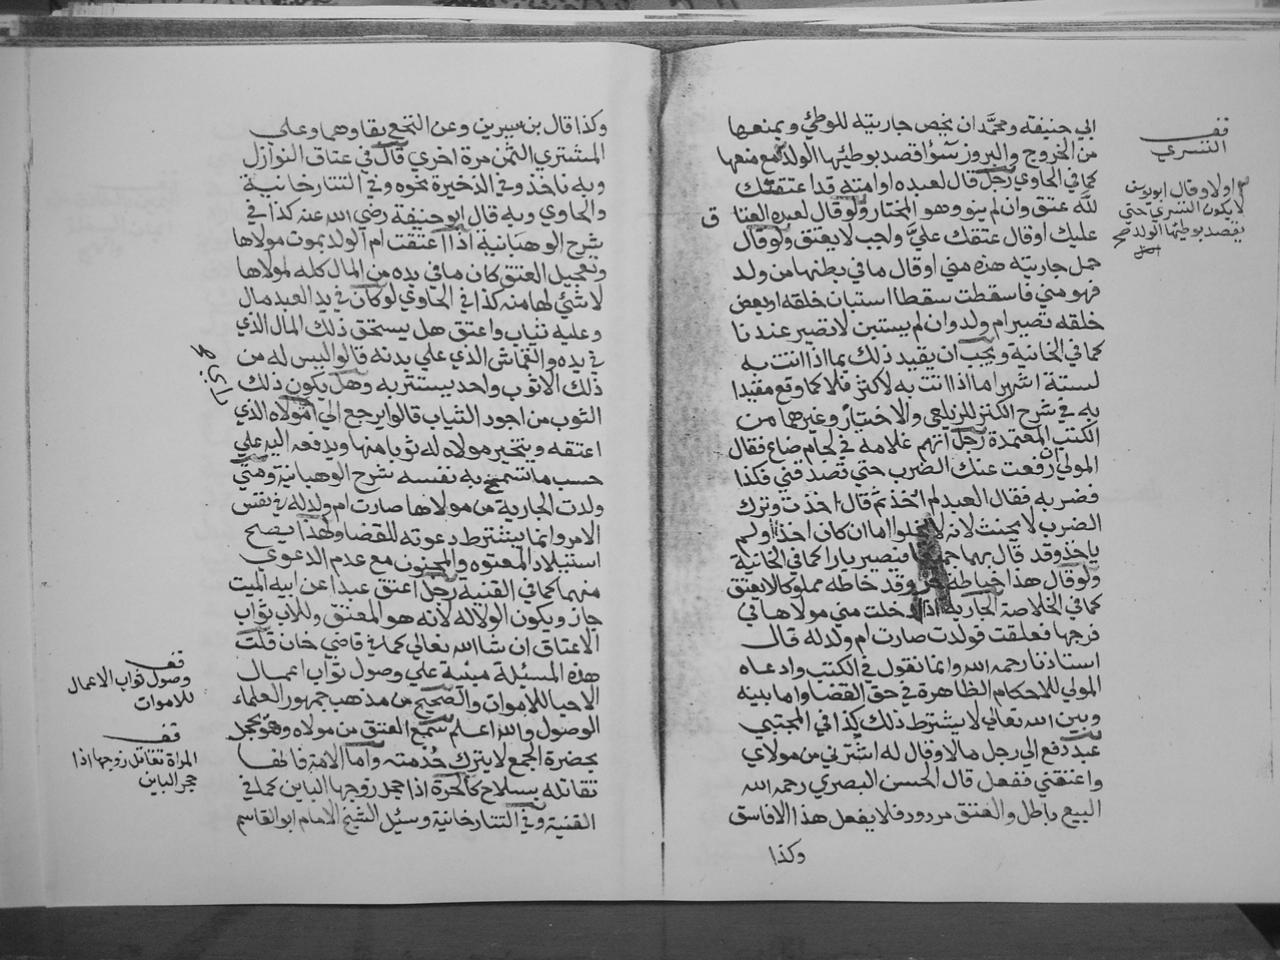 ابي حنيفة ومحمد ان يخص جاريته للوطئ ويمنعها
من الخروج والبروز سواقصد بوطئها الولد مع منعها
كما في الحاوي رجل قال لعبده او امته قد اعتقتك
لله عتق وان لم ينو وهو المختار ولو قال لعبده العتا
ق
عليك او قال عتقك علي واجب لا يعتق ولو قال
حمل جاريته هذه مني او قال ما في بطنها من ولد
فهو مني فاسقطت سقطا استبان خلقه او بعض
خلقه تصير ام ولد وان لم يستبن لا تصير عندنا
كما في الخانية ويجب ان يقيد ذلك بما اذا اتت به
لستة اشهر اما اذا اتت به لاكثر فلا كما وقع مقيدا
به في شرح الكنز للزيلعي والاختيار وغيرها من
الكتب المعتمدة رجل اتهم غلامه في لجام ضاع فقال
المولي ان رفعت عنك الضرب حتي تصدقني فكذا
فضربه فقال العبد لم اخذ ثم قال اخذت وترك
الضرب لا يحنث لانه لا يخلوا اما ان كان اخذ او لم
ياخذ وقد قال بهما فيصير بارا كما في الخانية
ولو قال هذا خياطة حر وقد خاطه مملوكا لا يعتق
كما في الخلاصة الجارية اذا ادخلت مني مولاها في
فرجها فعلقت فولدت صارت ام ولد له قال
استاذنا رحمه الله وانما نقول في الكتب وادعاه
المولي للاحكام الظاهرة في حق القضا واما بينه
وبين الله تعالي لا يشترط ذلك كذا في المجتبي
عبد دفع الي رجل مالا وقال له اشترني من مولاي
واعتقني ففعل قال الحسن البصري رحمه الله
البيع باطل والعتق مردود فلا يفعل هذا الا فاسق
وكذا
قف
التسري
اولا وقال ابو يوسف
لا يكون التسري حتي
يقصد بوطئها الولد صح
وكذا قال بن سيرين وعن النخعي بقاوهما وعلي
المشتري الثمن مرة اخري قال في عتاق النوازل
وبه ناخذ وفي الذخيرة نحوه وفي التتارخانية
والحاوي وبه قال ابو حنيفة رضي الله عنه كذا في
شرح الوهبانية اذا اعتقت ام الولد بموت مولاها
وتعجيل العتق كان ما في يده من المال كله لمولاها
لا شئ لها منه كذا في الحاوي لو كان في يد العبد مال
وعليه ثياب واعتق هل يستحق ذلك المال الذي
في يده والقماش الذي علي بدنه قالوا ليس له من
ذلك الا ثوب واحد يستتر به وهل يكون ذلك
الثوب من اجود الثياب قالوا يرجع الي مولاه الذي
اعتقه ويتخير مولاه له ثوبا منها ويدفعه اليه علي
حسب ما تسمح به نفسه شرح الوهبانية ومتي
ولدت الجارية من مولاها صارت ام ولد له في نفس
الامر وانما يشترط دعوته للقضا ولهذا يصح
استيلاد المعتوه والمجنون مع عدم الدعوي
منهما كما في القنية رجل اعتق عبدا عن ابيه الميت
جاز ويكون الولا له لانه هو المعتق وللاب ثواب
الاعتاق ان شا الله تعالي كما في قاضي خان قلت
هذه المسئلة مبنية علي وصول ثواب اعمال
الاحيا للاموات والصحيح من مذهب جمهور العلماء
الوصول والله اعلم سمع العتق من مولاه وهو يجحد
بحضرة الجمع لا يترك خدمته واما الامة فالظفا
تقاتله بسلاح كالحرة اذا جحد زوجها الباين كما في
القنية وفي التتارخانية وسئل الشيخ الامام ابو القاسم
قف
وصول ثواب الاعمال
للاموات
قف
المراة تقاتل زوجها اذا
جحد الباين